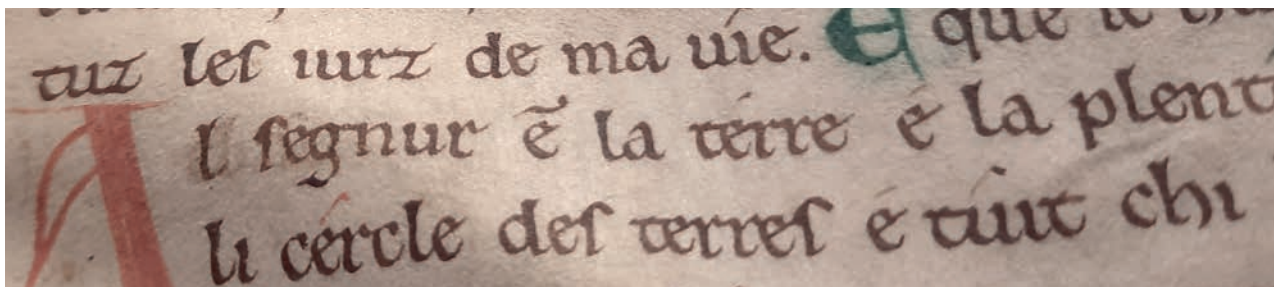 tuz leſ iurz de ma uie. E que
Al ſegnur ē la térre é la plent
li cércle deſ terreſ é túit chi